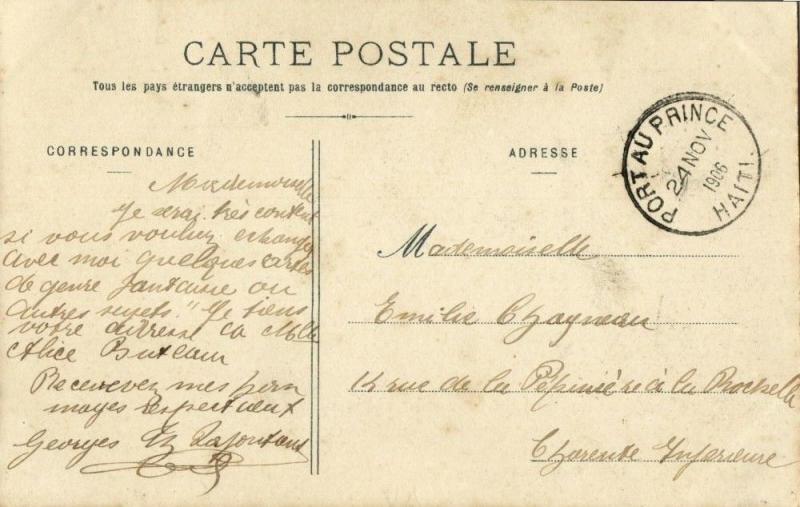 CARTE POSTALE
Tous les pays étrangers n'acceptent pas la correspondance au recto (Se renseigner à la Poste)
CORRESPONDANCE
ADRESSE
PORT AU PRINCE
24 NOV
1906
HAITI
Mademoiselle
Je serai très content
si vous voulez echanger
avec moi quelques cartes
de genre fantaisie ou
autres sujets. Je tiens
votre adresse
Alice
Recevez mes
mages respectueux
Georges
Mademoiselle
Emilie Chagneau
14 rue de la Pépinière à la Rochelle
Charente Inferieure